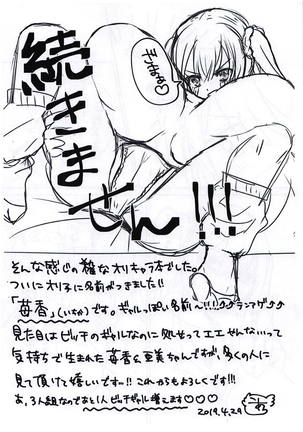 続きま
せん!!!
そんな感じの雑なオリキャラ本でした。
ついにオリ子に名前がつきました!!
「苺香」(いちか)です。ギャルっぽい名前〜!!!
見た目はビッチのギャルなのに処女ってエエやんないって
気持ちで生まれた苺香&亜美ちゃんですが、多くの人に
見て頂けて嬉しいです…!! これからもよろしくです!!!
あ、3人組なのであと1人ビッチギャル増えます♡♡♡
2019.4.29